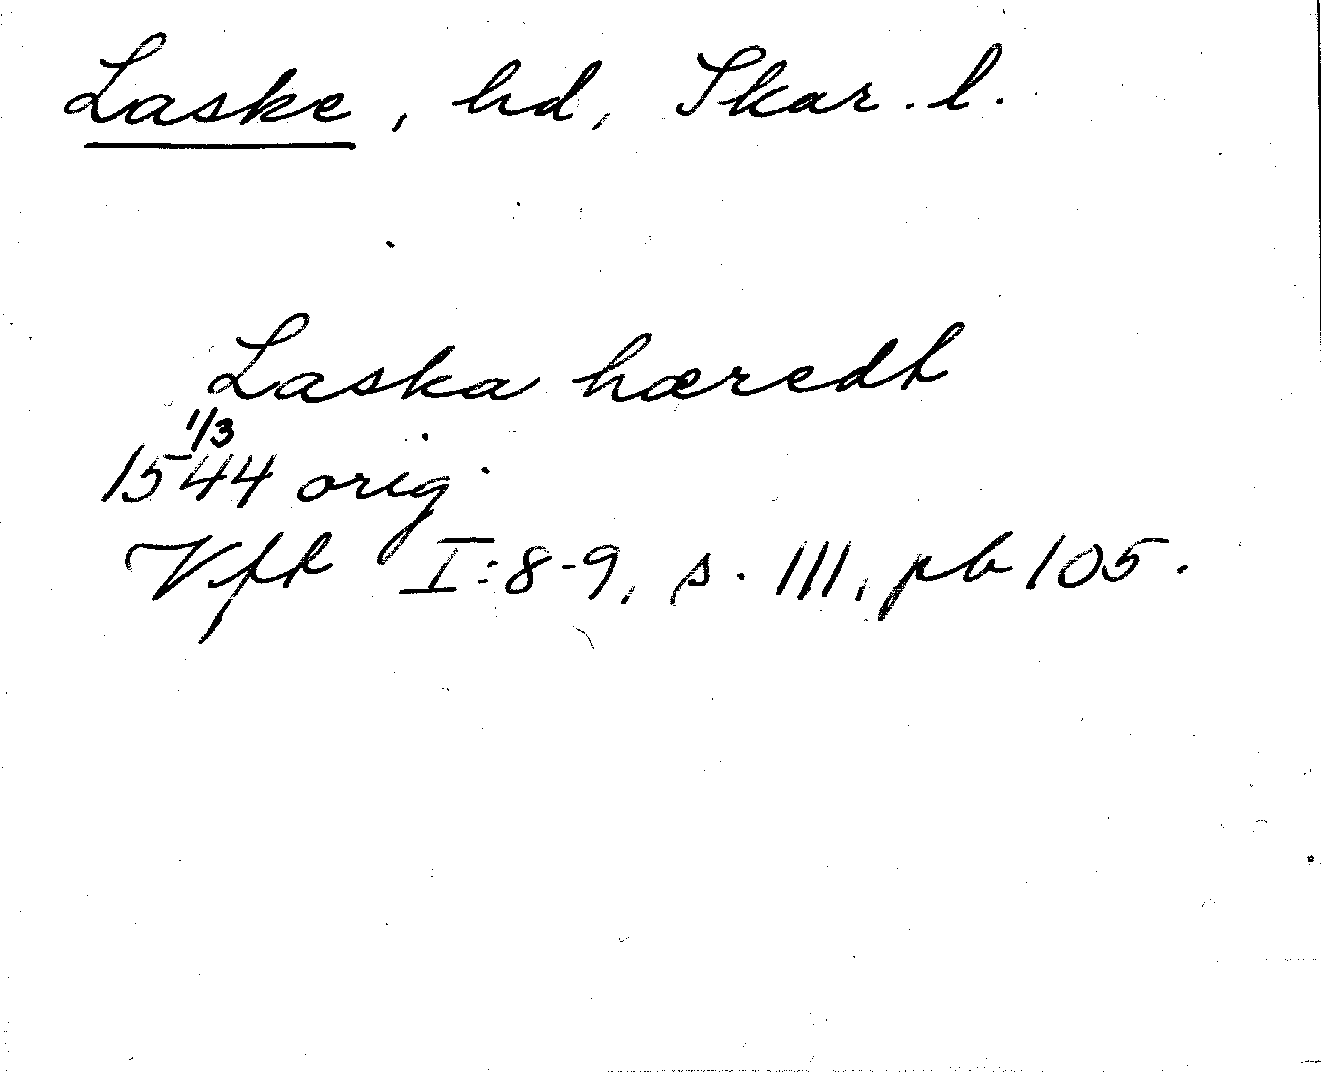 Laske, hd, Skar. l.
Laska hæredh
1/3
1544 orig.
Vft I:8-9, s. 111, pb 105.